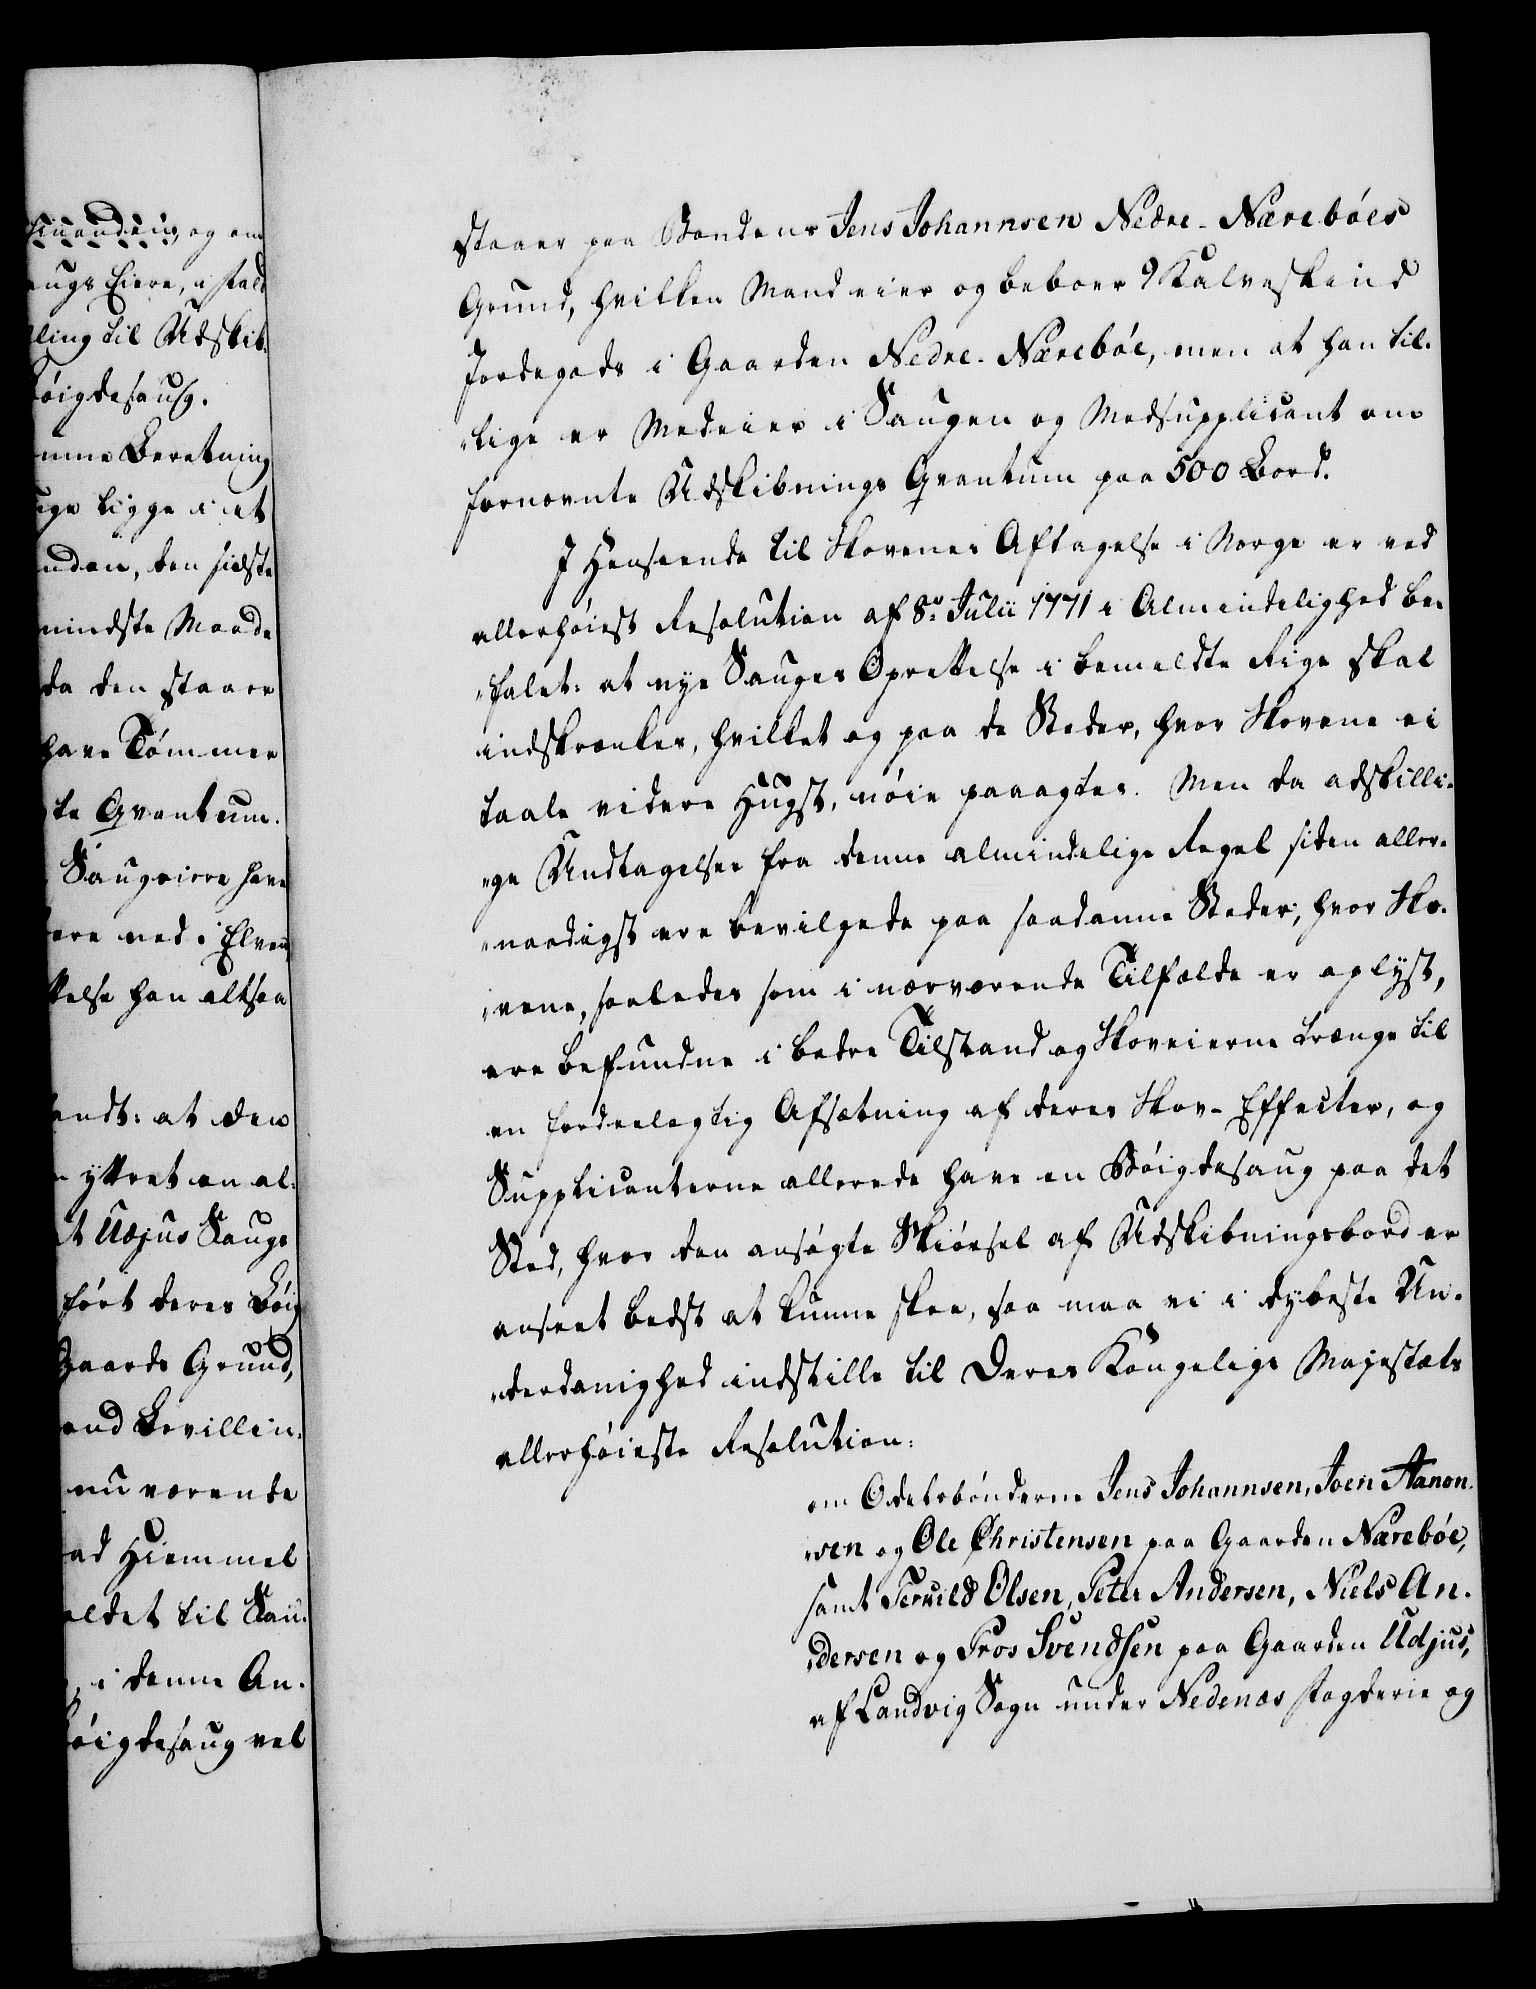 Finanden, og om
augs Eiere, i stæd
ling til Udskib-
Bøigdesaug.
mme Beretning
uge ligge i et
nden, den sidste
mindste Maade
da den staaer
have Tømmer
te Qvantum.
Saugeiere have
ere ned i Elven
telse han altsaa
endt: at den
yttret en al-
t Udjus Saugs
ført deres Bøig
Gaards Grund,
and Bevillin-
nu værende
ad Hiemmel
eldet til Sau-
, i denne An-
Bøigdesaug vel
staaer paa Bondens Jens Johannsen Nedre-Nærebøes
Grund, hvilken Mand eier og beboer 9 Kalveskind
Jordegods i Gaarden Nedre-Nærebøe, men at han til-
lige er Medeier i Saugen og Medsupplicant om
fornævnte Udskibnings Qvantum paa 500 Bord.
I Henseende til Skovenes Aftagelse i Norge er ved
allerhøiest Resolution af 8de Julii 1771 i Almindelighed be-
falet: at nye Sauges Oprettelse i bemeldte Rige skal
indskrænkes, hvilket og paa de Steder, hvor Skovene ei
taale videre Hugst, nøie paaagtes. Men da adskilli-
ge Undtagelser fra denne almindelige Regel siden aller-
naadigst ere bevilgede paa saadanne Steder, hvor Sko-
vene, saaledes som i nærværende Tilfælde er oplyst,
ere befundne i bedre Tilstand og Skoveierne trænge til
en fordeelagtig Afsætning af deres Skov-Effecter, og
Supplicanterne allerede have en Bøigdesaug paa det
Sted, hvor den ansøgte Skiørsel af Udskibningsbord er
anseet bedst at kunne skee, saa maa vi i dybeste Un-
derdanighed indstille til Deres Kongelige Majestæts
allerhøieste Resolution:
om Odelsbønderne Jens Johannsen, Joen Aanon-
sen og Ole Christensen paa Gaarden Nærebøe,
samt Tervild Olsen, Peter Andersen, Niels An-
dersen og Tros Svendsen paa Gaarden Udjus,
af Landvig Sogn under Nedenæs Fogderie og